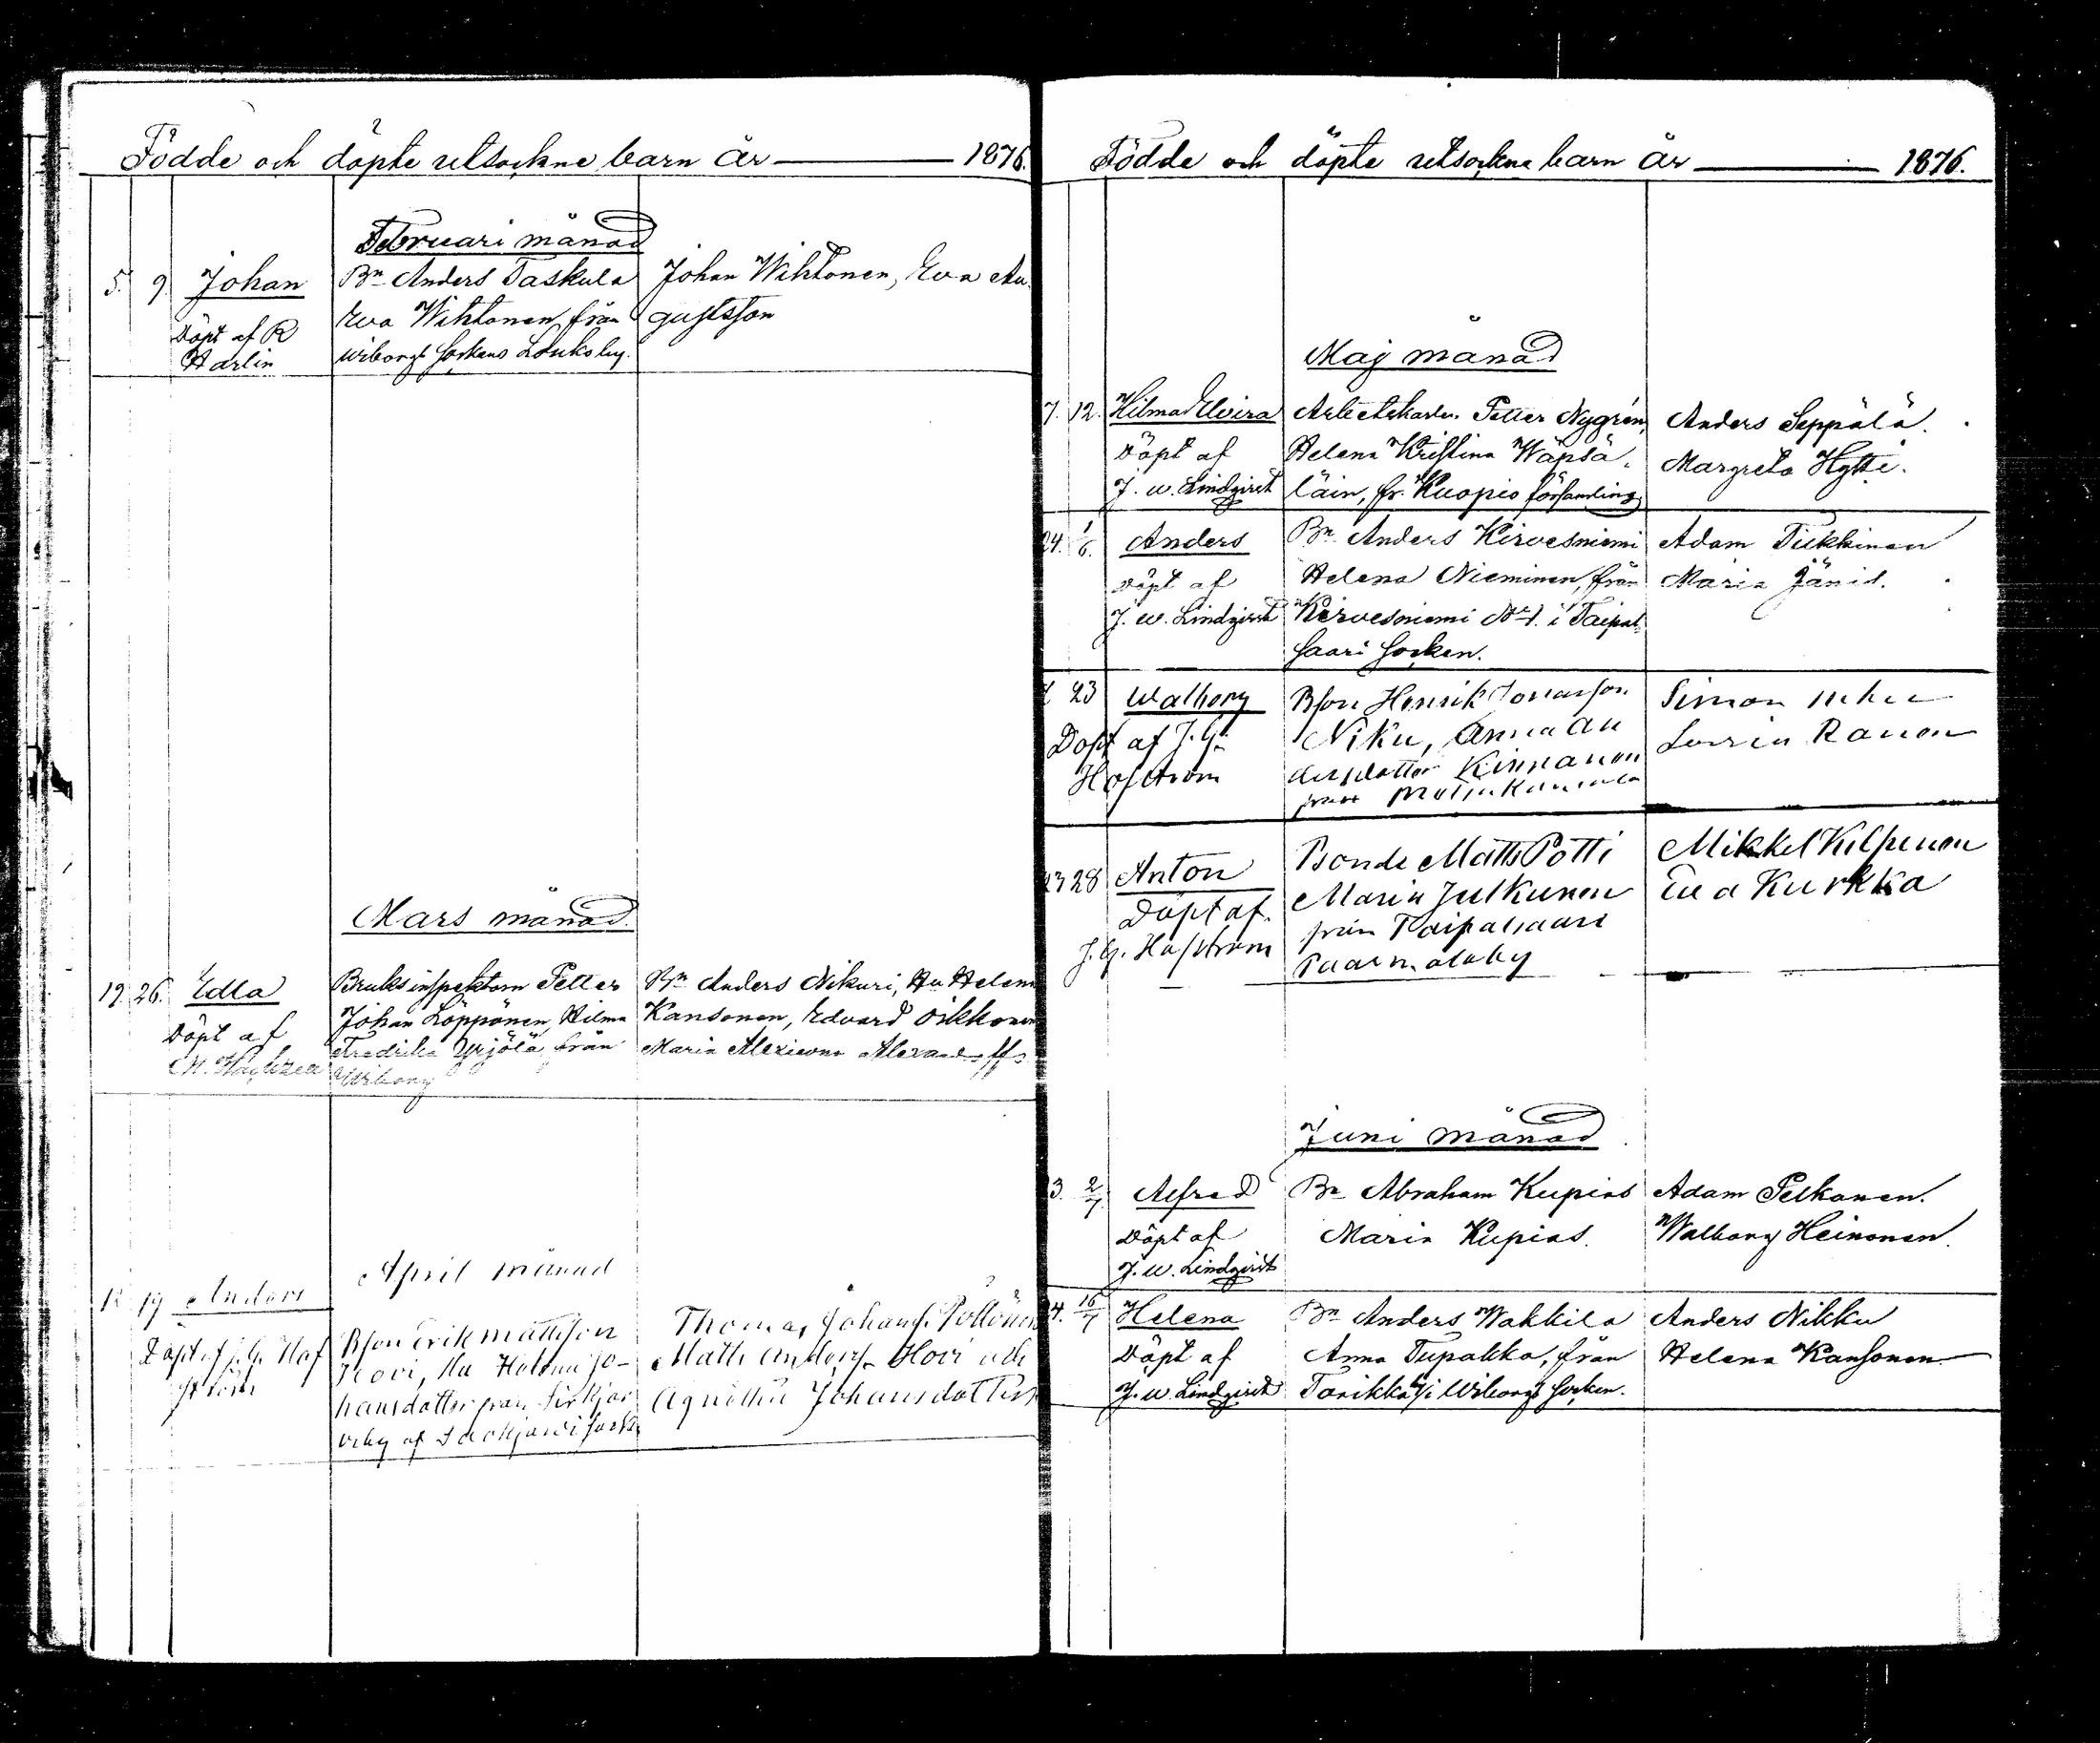 Födde och döpte utsockne barn år 1876.
Februari månad
5. 9. Johan Bn Anders Taskula Johan Wihtonen, Eva Au-
Döpt af R Eva Wihtonen från gustsson
Harlin Wiborgs sockens Louks by.
Mars månad.
19. 26. Edla Bruksinspektorn Petter Bn Anders Nikuri, Hu Helena
Döpt af Johan Löppönen, Hilma Kansonen, Edvard Oikkonen
Fredrika Yrjölä från Maria Alexiewna
Wiborg
April månad
19 Anders
Döpt af J. G. Haf Bson Erik Mattsson Thomas Johans. Pöllönen
ström Hovi, Hu Helena Jo- Matts Anders. Hovi och
hansdotter från Johansdotter
by af
Födde och döpte utsockne barn år 1876.
Maj månad
7. 12. Hilma Elvira Arbetskarlen Petter Nygrén, Anders Seppälä.
Döpt af Helena Kristina Wäpsä- Margreta Hytti.
J. W. Lindqvist läin, fr. Kuopio församling
24. 1/6. Anders Bn Anders Kirvesniemi Adam Tiekkinen
Döpt af Helena Nieminen, från Maria Jänis.
J. W. Lindqvist Kirvesniemi No 1. i Taipal-
saari socken.
23 Walborg Bson Henrik Simon
Döpt af J. G. Niku, Anna An
Hafström dersdotter Kinnanen
från
23 28 Anton Bonde Matts Pötti Mikkel Kilpinen
Döpt af Maria Julkunen Eva Kurkka
J. G. Hafström från Taipalsaari
Juni månad
3. 2/7. Alfred Bn Abraham Kupias Adam Pelkonen.
Döpt af Maria Kupias. Walborg Heinonen.
J. W. Lindqvist
24. 16/7 Helena Bn Anders Wakkila Anders Nikku
Döpt af Anna Tupakka, från Helena Kansonen
J. W. Lindqvist Tarikka i Wiborgs socken.